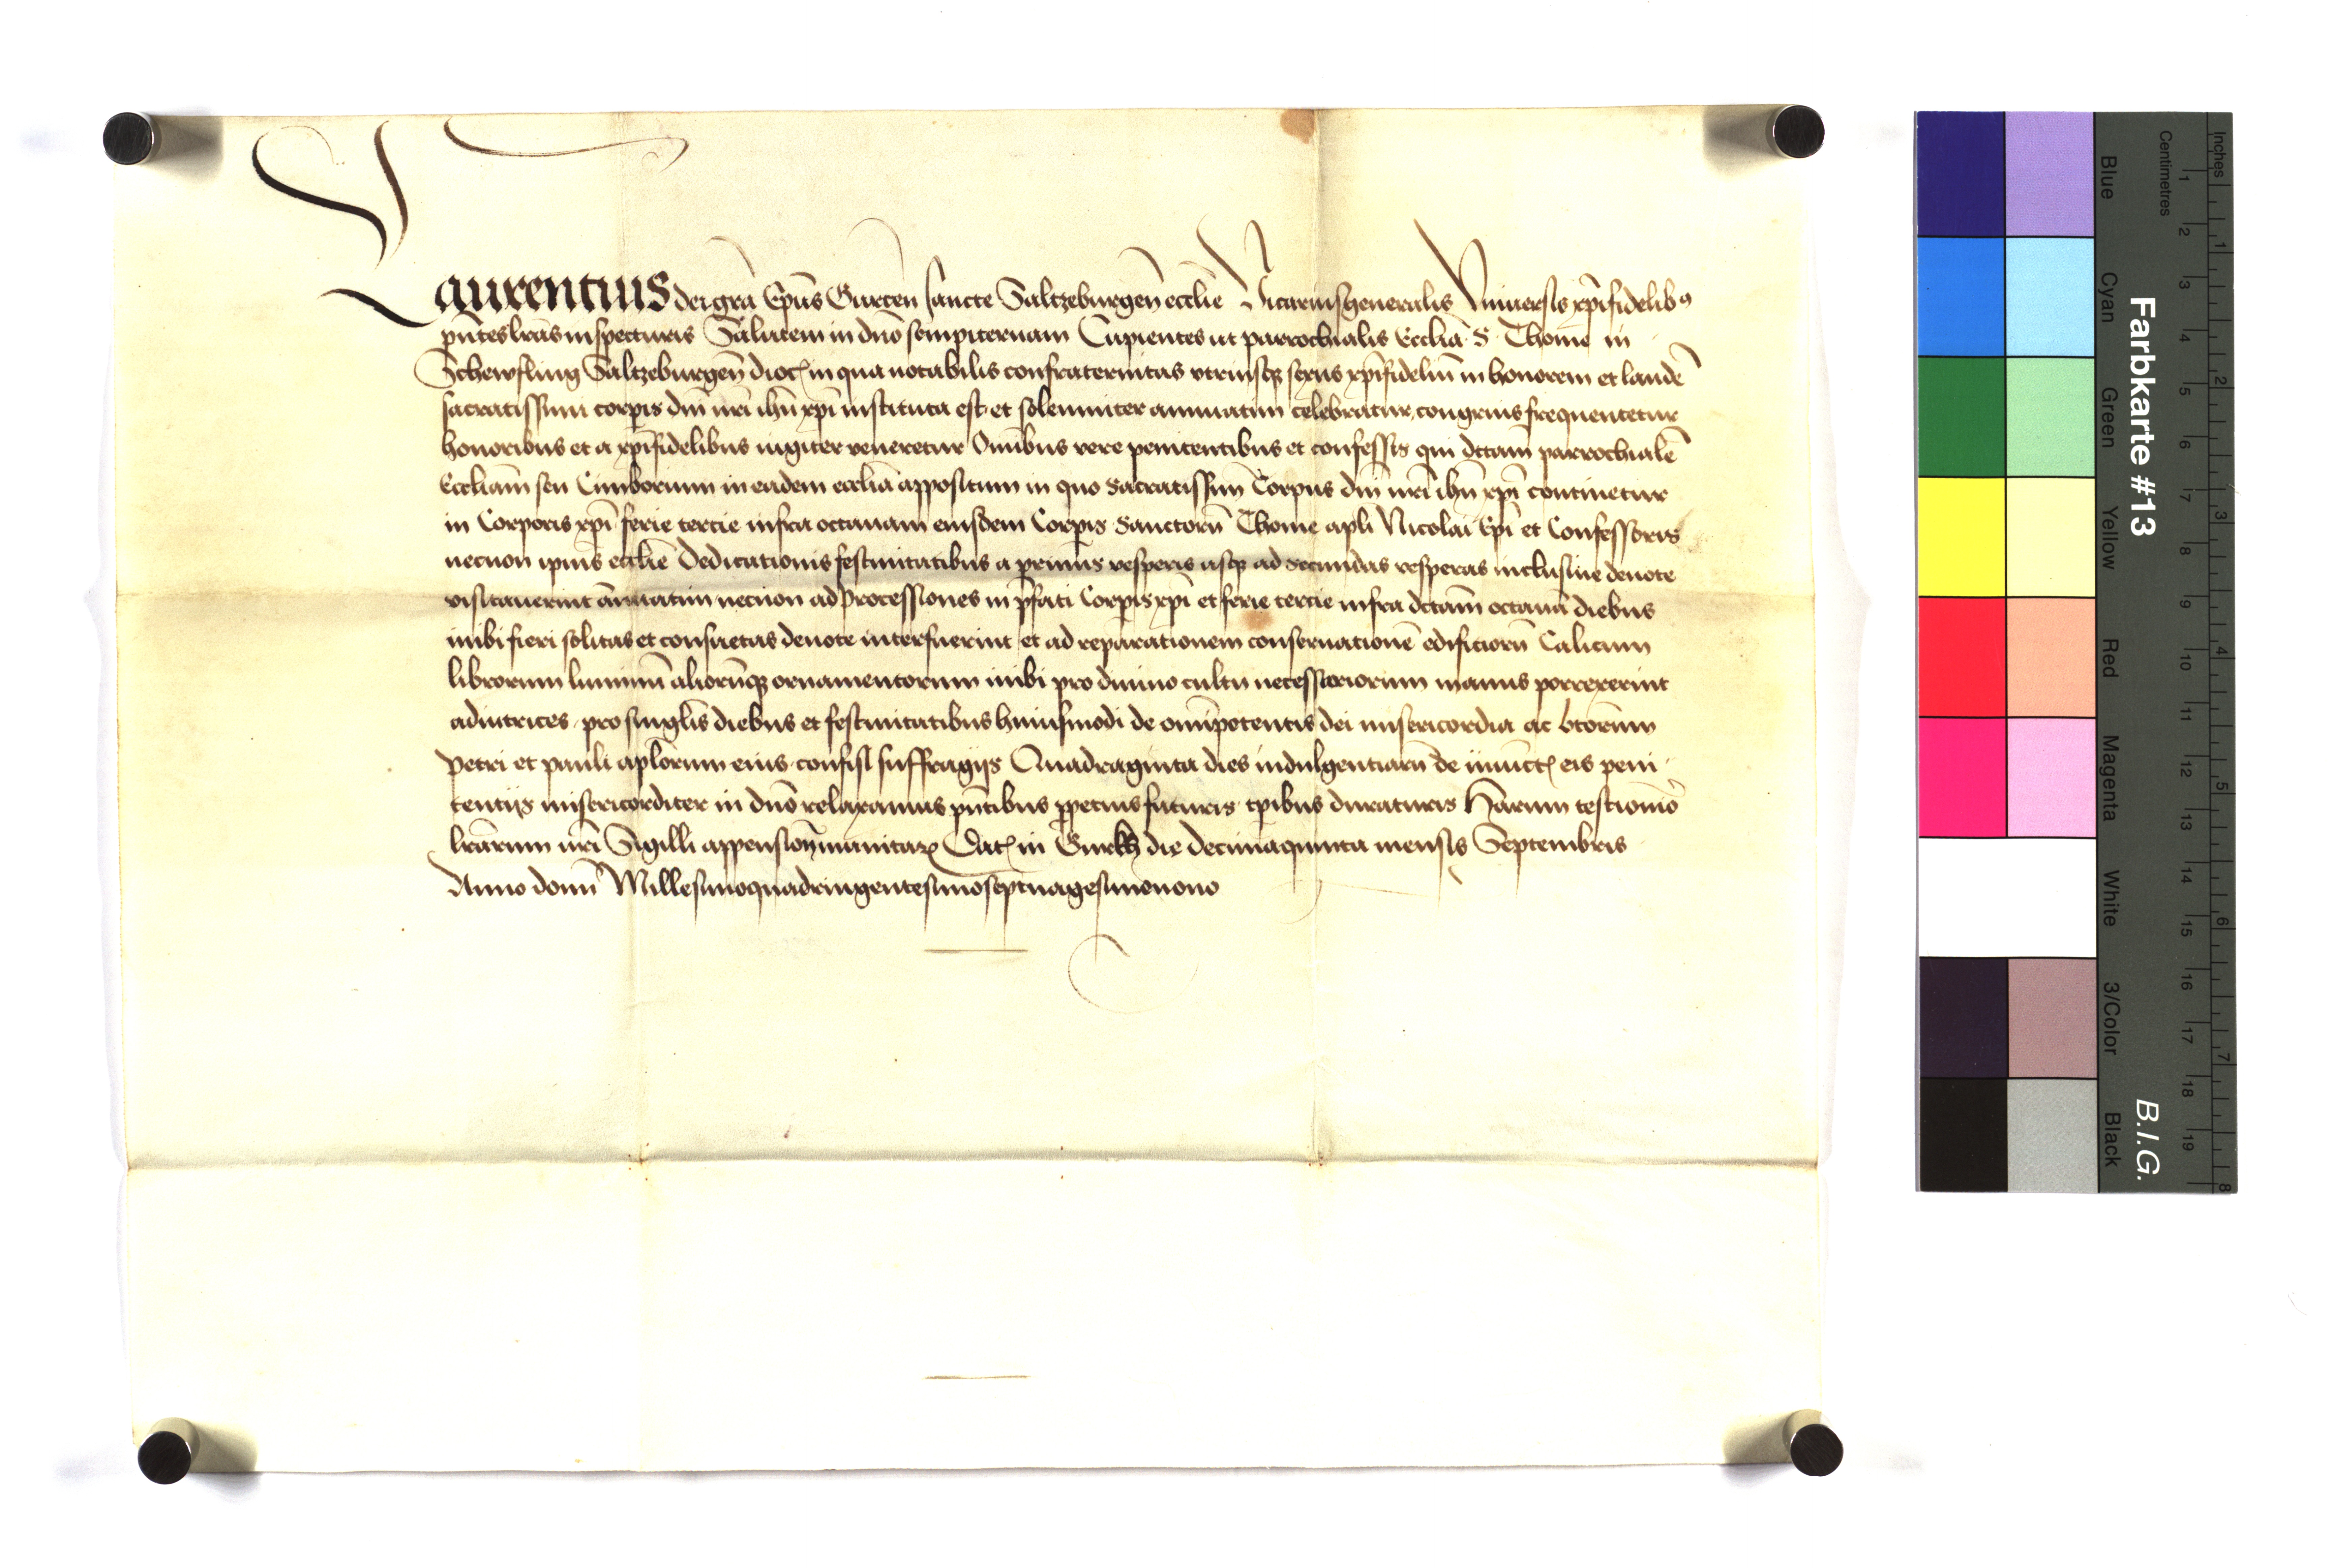 Laurentius dei gra͞ Ep͞us Gurcen͞ sancte Saltzeburgen͞ ecclie͞ Vicarius generalis Vniuersis xp͞ifidelibꝰ
pn͞tes lras inspecturis Salutem in dn͞o sempiternam Cupientes ut parrochialis Ecclia͞ S Thome in
Schewfling Saltzeburgen͞ dioc͞ in qua notabilis confraternitas vtriusqꝫ sexus xp͞ifideliu͞ in honorem et laude͞
sacratissimi corpis dni͞ nri͞ ihu͞ xpi͞ instituta est et solemniter annuatim celebratur, congruis frequentetur
honoribus et a xp͞ifidelibus iugiter veneretur Omi͞bus vere penitentibus et confessis qui dcta͞m parrochiale͞
Eccliam͞ seu Cimborium in eadem ecclia͞ appositum in quo Sacratissimu͞ Corpus dni͞ nri͞ ihu͞ xpi͞ continetur
in Corporis xpi͞ ferie tercie infra octauam eiusdem Corpis Sanctoru͞ Thome apli͞ Nicolai Epi͞ et Confessoris
necnon ipius͞ ecclie͞ Dedicationis festiuitatibus a primis vesperis usqꝫ ad secundas vesperas inclusiue deuote
visitauerint an͞uatim necnon ad processiones in p͞fati Corpis xpi͞ et ferie tercie infra dctam͞ octaua͞ diebus
inibi fieri solitas et consuetas deuote interfuerint et ad reparationem conseruatione͞ edificioru͞ Calicum
librorum luminu͞ alioru͞qꝫ ornamentorum inibi pro diuino cultu necessariorum manus porrexerint
adiutrices pro singlis͞ diebus et festiuitatibus huiusmodi de omi͞potentis dei misericordia ac bto͞rum
Petri et pauli aplo͞rum eius confisi suffragijs Quadraginta dies indulgentiaru͞ de iniunct͞ eis peni
tentijs misericorditer in dn͞o relaxamus pn͞tibus ꝑpetuis futuris tp͞ibus duraturis Harum testimo͞io
lra͞rum nri͞ Sigilli appension͞ munitaꝝ Dat͞ in Gurkh die decimaquinta mensis Septembris
Anno domi͞ Millesimoquadringentesimoseptuagesimonono
Farbkarte #13
B.I.G.
Centimetres
Inches
Blue
Cyan
Green
Yellow
Red
Magenta
White
3/Color
Black
1 2 3 4 5 6 7 8 9 10 11 12 13 14 15 16 17 18 19
1 2 3 4 5 6 7 8